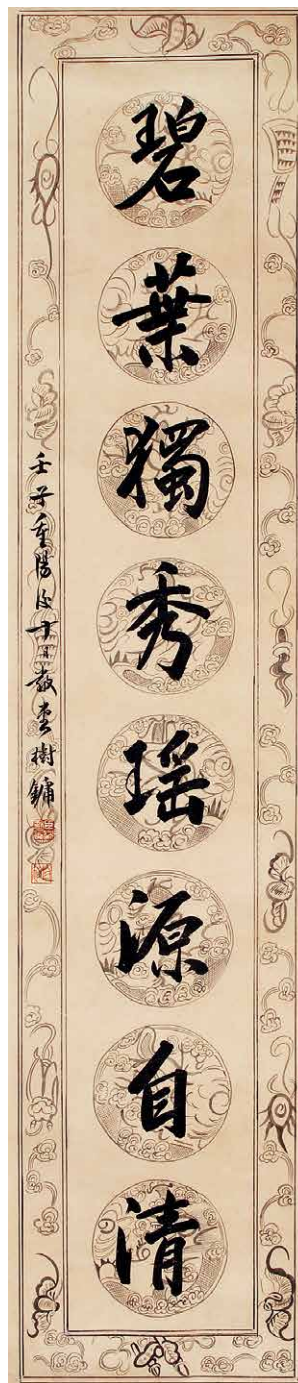 碧葉獨秀瑶源自清
壬子重陽後十日樹鏞